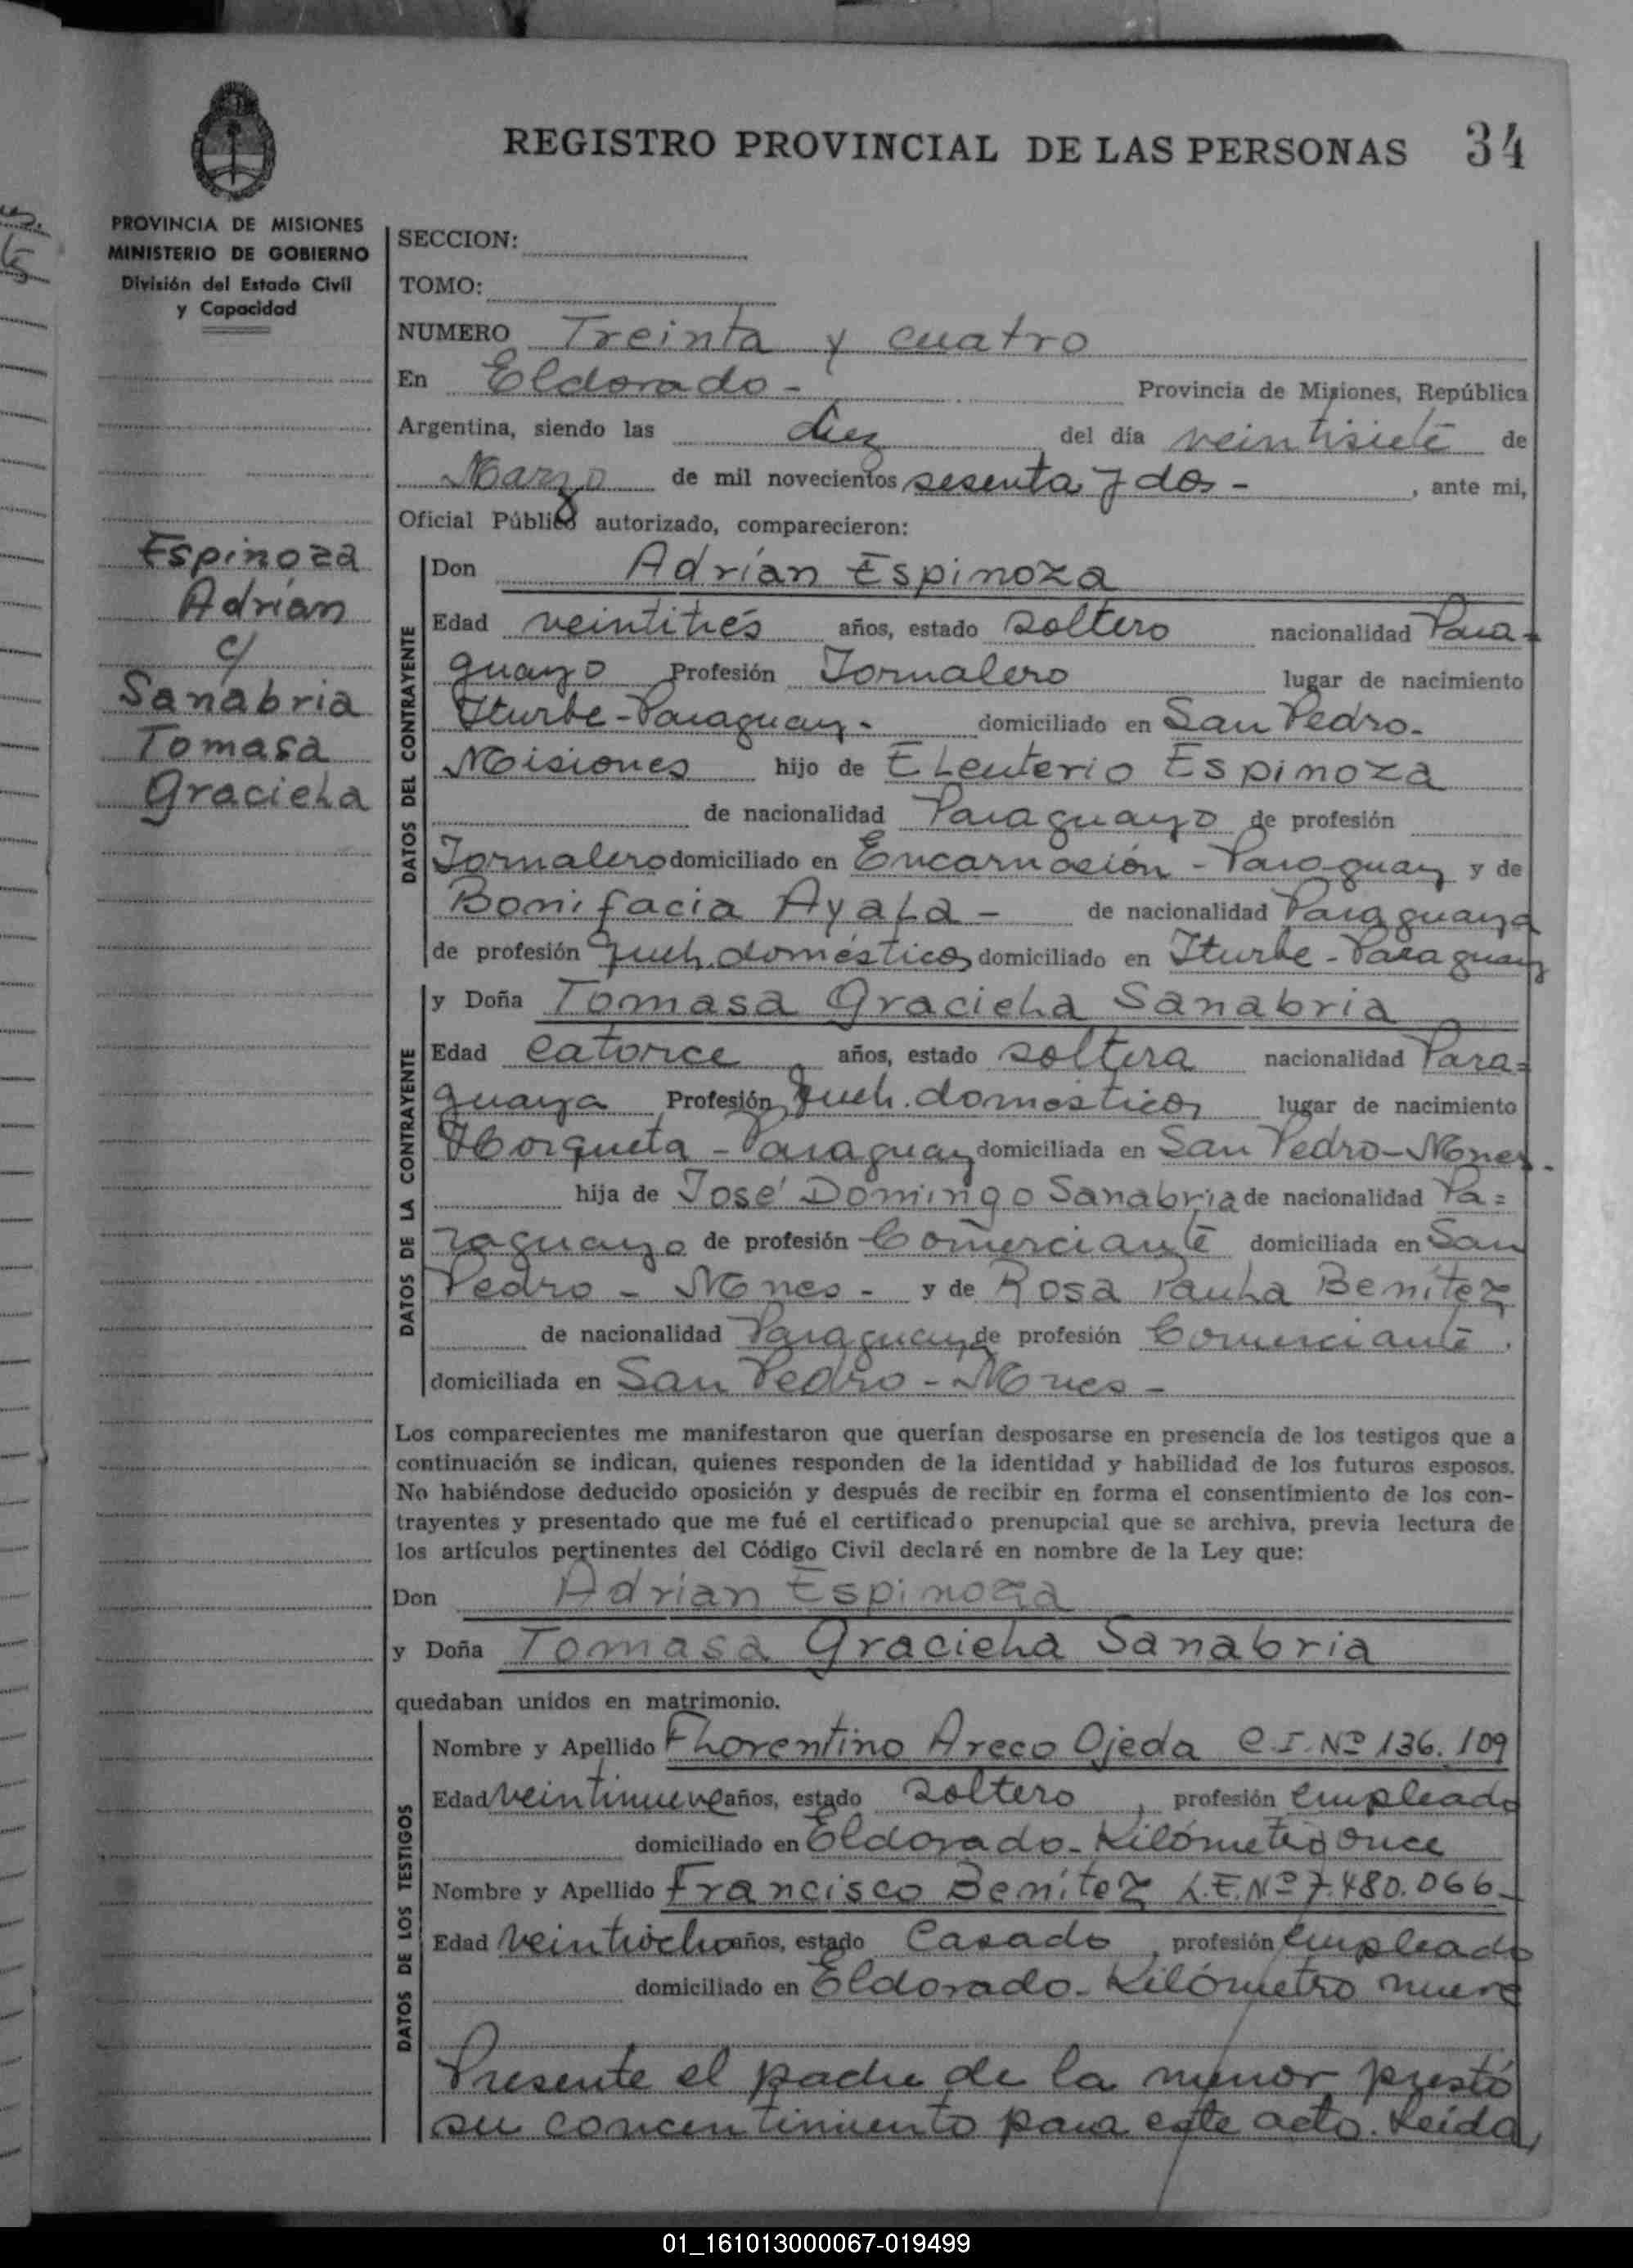 REGISTRO PROVINCIAL DE LAS PERSONAS 34
PROVINCIA DE MISIONES
MINISTERIO DE GOBIERNO
División del Estado Civil
y Capacidad
Espinoza
Adrián
c/
Sanabria
Tomasa
Graciela
SECCION:
TOMO:
NUMERO Treinta y cuatro
En Eldorado - Provincia de Misiones, República
Argentina, siendo las diez del día veintisiete de
Marzo de mil novecientos sesenta y dos - , ante mi,
Oficial Público autorizado, comparecieron:
DATOS DEL CONTRAYENTE
Don Adrían Espinoza
Edad veintitrés años, estado soltero nacionalidad Para=
guayo Profesión Jornalero lugar de nacimiento
Iturbe - Paraguay - domiciliado en San Pedro -
Misiones hijo de Eleuterio Espinoza
de nacionalidad Paraguayo de profesión
Jornalero domiciliado en Encarnación - Paraguay y de
Bonifacia Ayala - de nacionalidad Paraguaya
de profesión queh. domésticos domiciliado en Iturbe - Paraguay
DATOS DE LA CONTRAYENTE
y Doña Tomasa Graciela Sanabria
Edad catorce años, estado soltera nacionalidad Para=
guaya Profesión queh. domésticos lugar de nacimiento
Horqueta - Paraguay domiciliada en San Pedro - Mnes -
hija de José Domingo Sanabria de nacionalidad Pa=
raguayo de profesión Comerciante domiciliada en San
Pedro - Mnes - y de Rosa Paula Benítez
de nacionalidad Paraguaya de profesión Comerciante.
domiciliada en San Pedro - Mnes -
Los comparecientes me manifestaron que querían desposarse en presencia de los testigos que a
continuación se indican, quienes responden de la identidad y habilidad de los futuros esposos.
No habiéndose deducido oposición y después de recibir en forma el consentimiento de los con-
trayentes y presentado que me fué el certificado prenupcial que se archiva, previa lectura de
los artículos pertinentes del Código Civil declaré en nombre de la Ley que:
Don Adrian Espinoza
y Doña Tomasa Graciela Sanabria
quedaban unidos en matrimonio.
DATOS DE LOS TESTIGOS
Nombre y Apellido Florentino Areco Ojeda C.I. Nº 136.109
Edad veintinueve años, estado soltero, profesión empleado
domiciliado en Eldorado - Kilómetro once
Nombre y Apellido Francisco Benítez L.E. Nº 7.480.066 -
Edad veintiocho años, estado Casado, profesión empleado
domiciliado en Eldorado - Kilómetro nueve
Presente el padre de la menor prestó
su concentimiento para este acto. Leída,
01_161013000067-019499